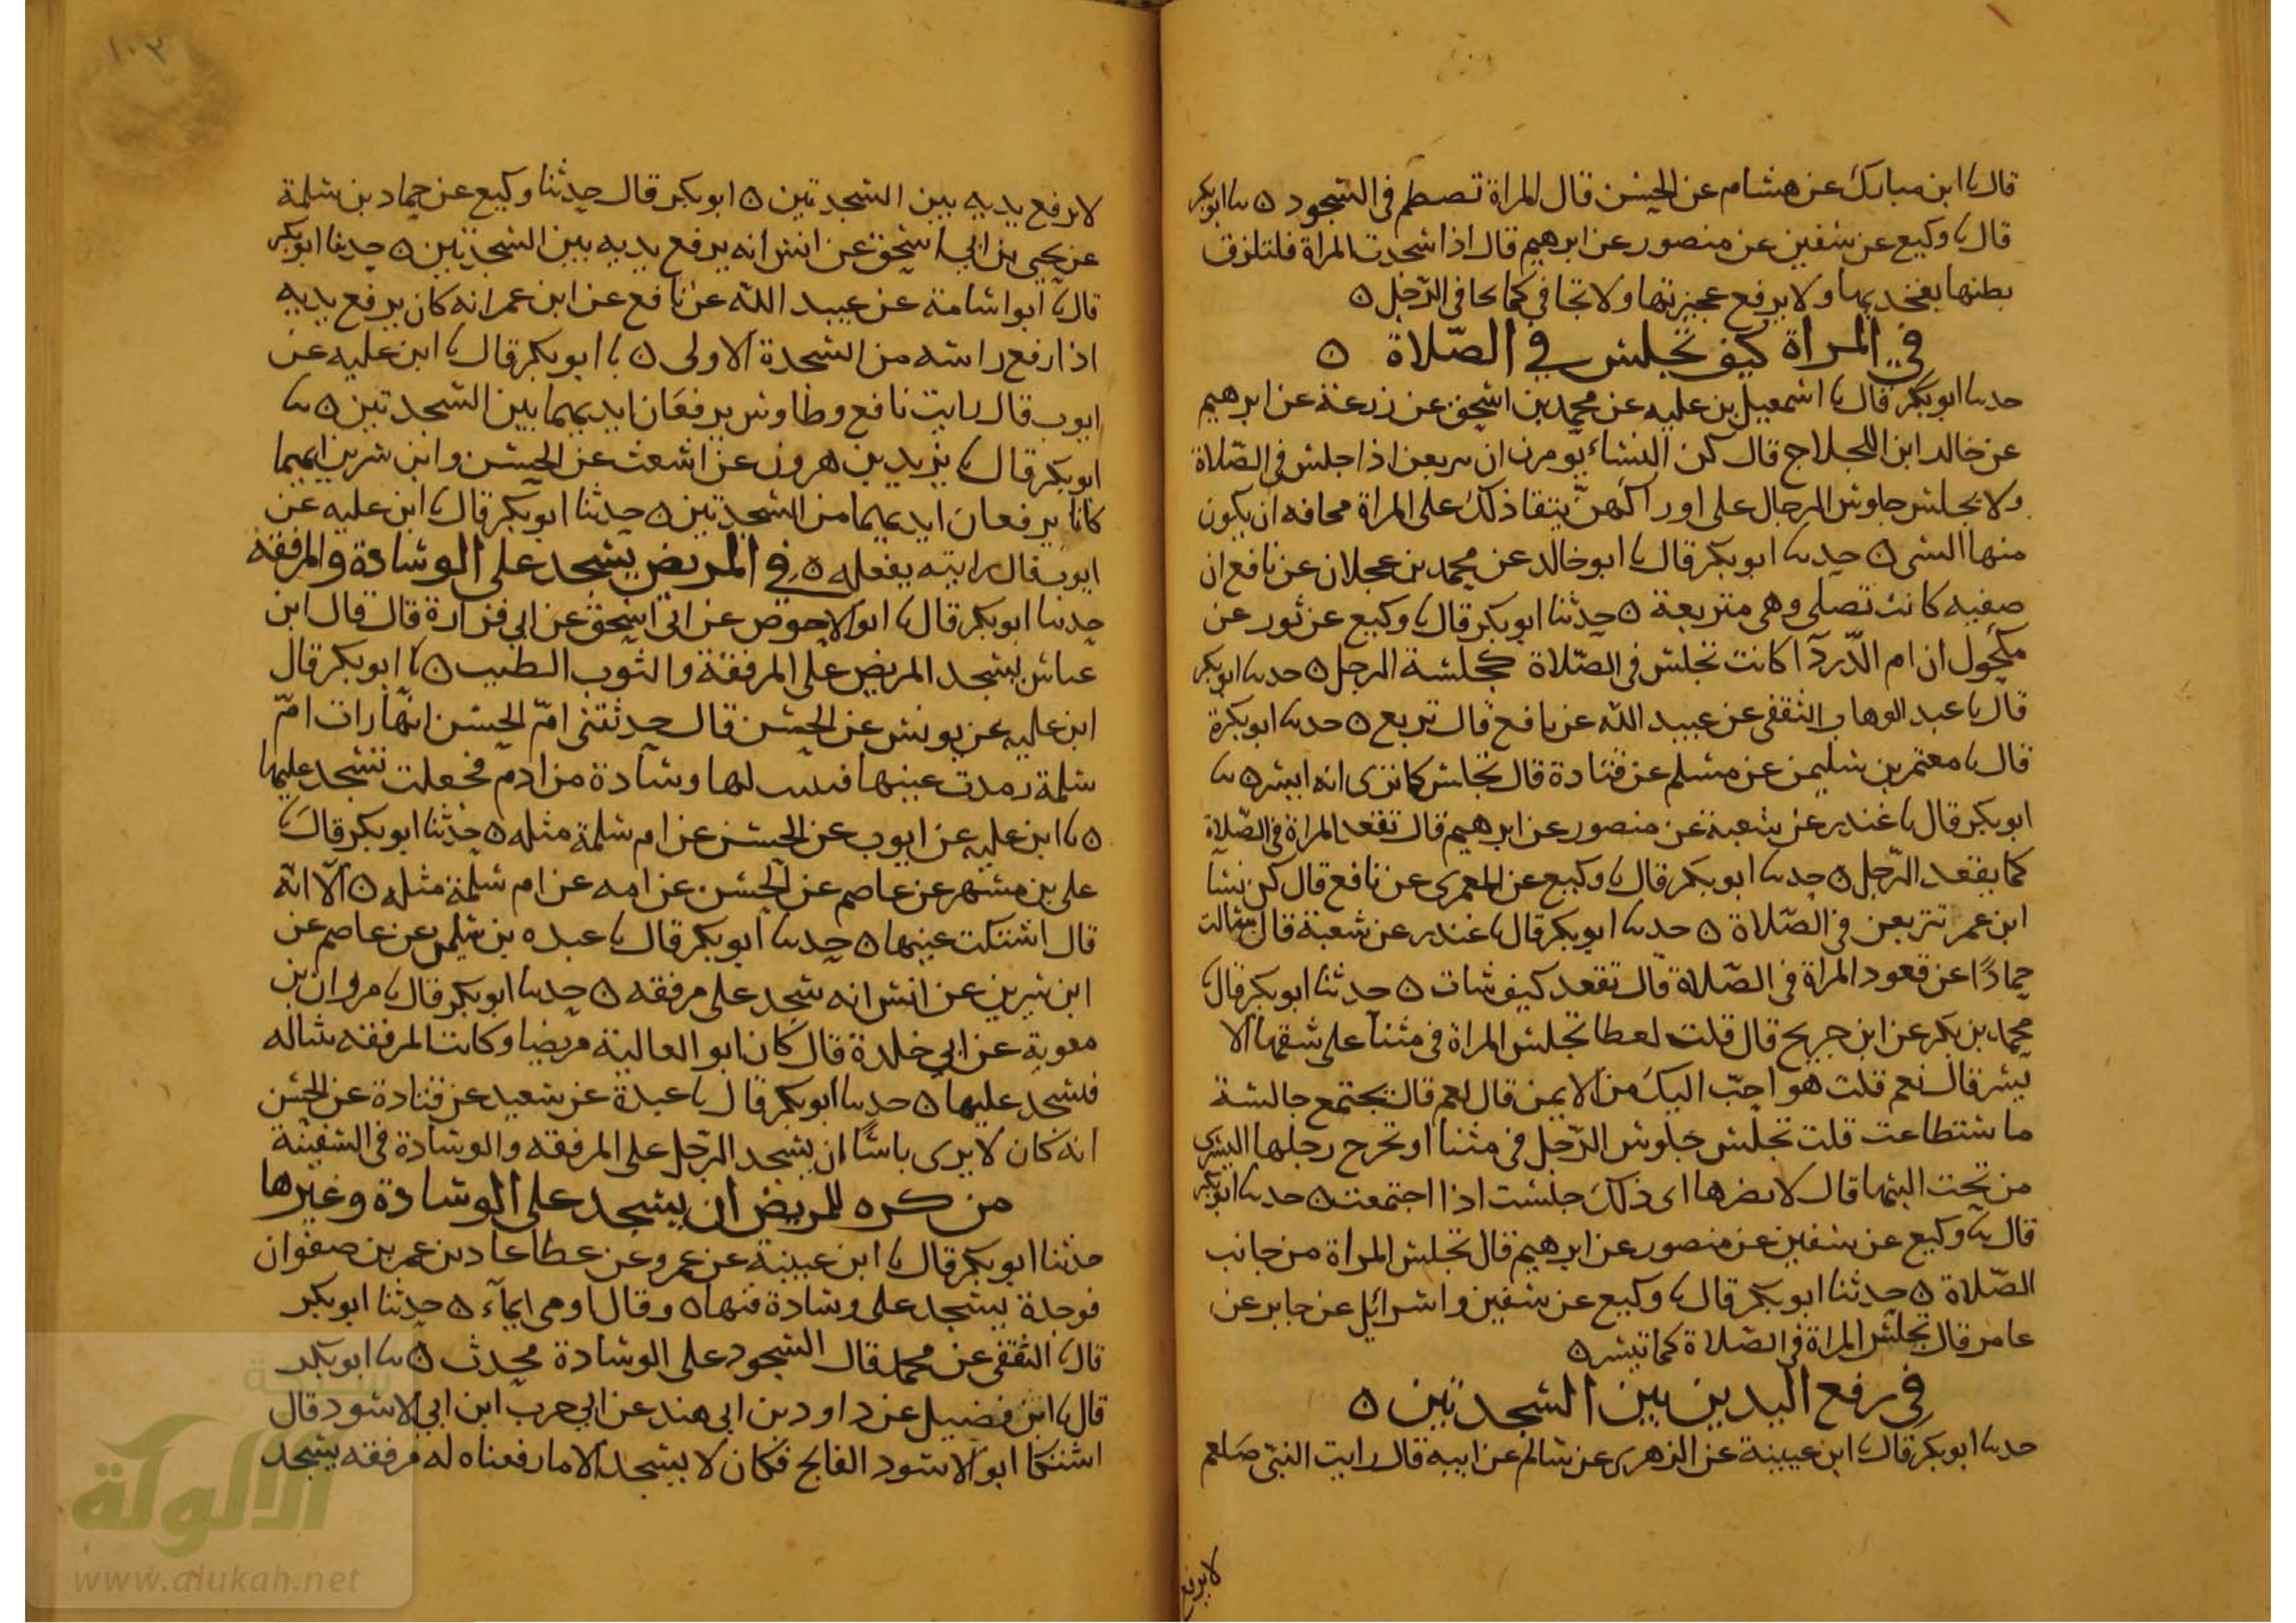 قال نا ابن مبارك عن هشام عن الحسن قال المراة تصطم في السجود ن نا ابو بكر
قال نا وكيع عن سفين عن منصور عن ابرهيم قال اذا سجدت المراة فلتلزق
بطنها بفخديها ولا يرفع عجيزتها ولا تجافي كما يحافي الرّجل ن
في المراة كيف تجلس في الصّلاة ن
حدىىا ابو بكر قال نا اسمعيل بن عليه عن محمد بن اسحق عن زرعة عن ابرهيم
عن خالد ابن اللجلاج قال كن النساء يومرن ان يربعن اذا جلسن في الصّلاة
ولا يجلسن جلوس الرجال على اوراكهنّ يتقا ذلك على المراة محافه ان يكون
منها الشى ن حدىىا ابو بكر قال نا ابو خالد عن محمد بن عجلان عن نافع ان
صفيه كانت تصلى وهى متربعة ن حدثنا ابو بكر قال نا وكيع عن ثور عن
مكحول ان ام الدّردآ كانت تجلس في الصّلاة كجلسة الرجل ن حدىىا ابو بكر
قال نا عبد الوهاب الثقفى عن عبيد الله عن نافع قال تربع ن حدىىا ابو بكرة
قال نا معتمر بن سليمن عن مسلم عن قتادة قال تجلس كما ترى انه ايسر ن نا
ابو بكر قال نا غندر عن شعبة عن منصور عن ابرهيم قال تقعد المراة في الصّلاة
كما يقعد الرّجل ن حدىىا ابو بكر قال نا وكيع عن العمرى عن نافع قال كن نسا
ابن عمر تتربعن في الصّلاة ن حدىىا ابو بكر قال نا غندر عن شعبة قال سالت
حمادًا عن قعود المراة في الصّلاة قال تقعد كيف شات ن حدثنا ابو بكر قال نا
محمد بن بكر عن ابن جريج قال قلت لعطا تجلس المراة في مثنآ على شقها الا
يسر قال نعم قلت هو احبّ اليك من الايمن قال نعم قال تجتمع جالسة
ما ستطاعت قلت تجلس جلوس الرّجل في مثنآ او تخرج رجلها اليسرى
من تحت اليتها قال لا يضرها اى ذلك جلست اذا اجتمعت ن حدىىا ابو بكر
قال نا وكيع عن سفين عن منصور عن ابرهيم قال تجلس المراة من جانب
الصّلاة ن حدثنا ابو بكر قال نا وكيع عن سفين واسرائيل عن جابر عن
عامر قال تجلس المراة في الصّلاة كما تيسر ن
في رفع اليدين بين السجدتين ن
حدىىا ابو بكر قال نا ابن عيينة عن الزهرى عن سالم عن ابيه قال رايت النبىّ صَلعم
لا يرفع
١٠٣
لا يرفع يديه بين السجدتين ن ابو بكر قال حدثنا وكيع عن حماد بن سلمة
عن يحيى بن ابي اسحق عن انس انه يرفع يديه بين السجدتين ن حدىنا ابو بكر
قال نا ابو اسامة عن عبيد الله عن نافع عن ابن عمر انه كان يرفع يديه
اذا رفع راسه من السجدة الاولى ن نا ابو بكر قال نا ابن عليه عن
ايوب قال رايت نافع وطاوس يرفعان ايديهما بين السجدتين ن نا
ابو بكر قال نا يزيد بن هرون عن اشعث عن الحسن وابن سرين انهما
كانا يرفعان ايديهما من السجدتين ن حدثنا ابو بكر قال نا ابن عليه عن
ايوب قال رايته يفعله ن في المريض يسجد على الوسادة والمرفقة
حدىىا ابو بكر قال نا ابو الاحوص عن ابي اسحق عن ابي فزارة قال قال ابن
عباس يسجد المريض على المرفقة والثوب الطيب ن نا ابو بكر قال
ابن عليه عن يونس عن الحسن قال حدثتنى امّ الحسن انها رات امّ
سلمة رمدت عينها فثنيت لها وسادة من ادم فجعلت تسجد عليها
ن نا ابن عليه عن ايوب عن الحسن عن ام سلمة مثله ن حدثنا ابو بكر قال نا
على بن مسهر عن عاصم عن الحسن عن امه عن ام سلمة مثله ن الّا انّه
قال اشتكت عينها ن حدىىا ابو بكر قال نا عبده بن سليمن عن عاصم عن
ابن سيرين عن انس انه سجد على مرفقه ن حدىىا ابو بكر قال نا مروان بن
معوية عن ابي خلدة قال كان ابو العالية مريضا وكانت المرفقه شاله
فسجد عليها ن حدىىا ابو بكر قال نا عبدة عن سعيد عن قتادة عن الحسن
انه كان لا يرى باسًا ان يسجد الرّجل على المرفقه والوسادة في السفينة
من كره للمريض ان يسجد على الوسادة وغيرها
حدثنا ابو بكر قال نا ابن عيينة عن عمرو عن عطا عاد بن عمر بن صفوان
فوجدة يسجد على وسادة فنهاه وقال اومى ايمآء ن حدثنا ابو بكر
قال نا الثقفى عن محمد قال السجود على الوسادة محدث ن نا ابو بكر
قال نا ابن فضيل عن داود بن ابى هند عن ابي حرب ابن ابي الاسود قال
اشتكا ابو الاسود الفالج فكان لا يسجد الا ما رفعناه له مرفقه يسجد
شبكة
الألوكة
www.alukah.net